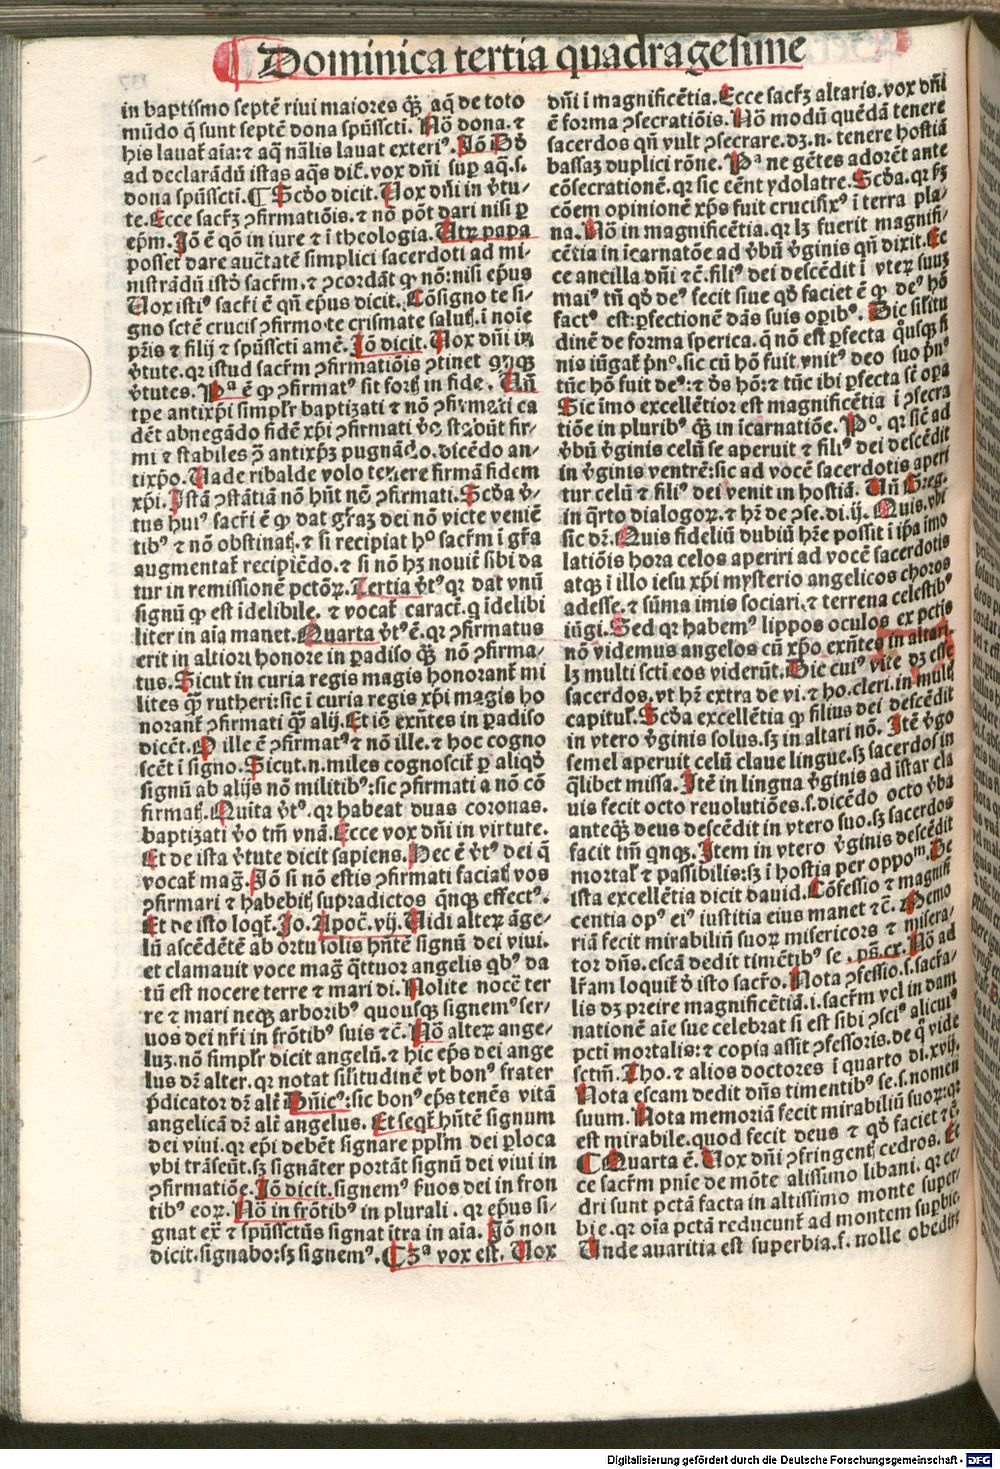 Dominica tertia quadragesime
in baptismo septē riui maiores qȝ̄ aq̄ de toto
mūdo q̄ sunt septē dona spūsscti. Nō dona. ⁊
his lauat̄ aīa: ⁊ aq̄ nālis lauat exteriꝰ. Jō
ad declarādū istas aq̄s dic̄. vox dn̄i suꝑ aq̄s.
dona spūsscti. ¶ Scd̄o dicit. Uox dn̄i in v̄tu-
te. Ecce sacr̄ȝ ꝯfirmatiōis. ⁊ nō pōt dari nisi ꝑ
ep̄m. Jō ē qō in iure ⁊ ī theologia. Utꝝ papa
posset dare auc̄tatē simplici sacerdoti ad mi-
nistrādū istd̄ sacr̄m. ⁊ ꝯcordāt ꝙ nō: nisi ep̄us
Uox istiꝰ sacr̄i ē qn̄ ep̄us dicit. Cōsigno te si-
gno sctē crucis ꝯfirmo te crismate salutꝭ. ī noīe
pr̄is ⁊ filij ⁊ spūsscti amē. Jō dicit. Uox dn̄i in
v̄tute. qꝛ istud sacr̄m ꝯfirmatiōis ꝯtinet
v̄tutes. Pᵃ ē ꝙ ꝯfirmatꝰ sit fortꝭ in fide. Un̄
tꝑe antixp̄i simpl̄r baptizati ⁊ nō ꝯfirmati ca
dēt abnegādo fidē xp̄i ꝯfirmati v̄o stabūt fir-
mi ⁊ stabiles ꝯ̄ antixp̄ȝ pugnādo. dicēdo an-
tixp̄o. Uade ribalde volo tenere firmā fidem
xp̄i. Jstā ꝯstātiā nō hn̄t nō ꝯfirmati. Scd̄a v̄-
tus huiꝰ sacr̄i ē ꝙ dat gr̄aȝ dei nō victe veniē
tibꝰ ⁊ nō obstinatꝭ. ⁊ si recipiat hᵒ sacr̄m ī gr̄a
augmentat̄ recipiēdo. ⁊ si nō hȝ nouit̄ sibi da
tur in remissionē pctōꝝ. Tertia v̄tꝰ qꝛ dat vnū
signū ꝙ est īdelibile. ⁊ vocat̄ caract̄. q̄ īdelibi
liter in aīa manet. Quarta v̄tꝰ ē. qꝛ ꝯfirmatus
erit in altiori honore in ꝑadiso qȝ̄ nō ꝯfirma-
tus. Sicut in curia regis magis honorant̄ mi
lites qȝ̄ rutheri: sic ī curia regis xp̄i magis ho
norant̄ ꝯfirmati qȝ̄ alij. Et iō exn̄tes in ꝑadiso
dicēt. O ille ē ꝯfirmatꝰ ⁊ nō ille. ⁊ hoc cogno
scēt ī signo. Sicut. n. miles cognoscit̄ ꝑ aliqd̄
signū ab alijs nō militibꝰ: sic ꝯfirmati a nō cō
firmatꝭ. Quīta v̄tꝰ. qꝛ habeat duas coronas.
baptizati v̄o tm̄ vnā. Ecce vox dn̄i in virtute.
Et de ista v̄tute dicit sapiens. Hec ē v̄tꝰ dei q̄
vocat̄ maḡ. Jō si nō estis ꝯfirmati faciatꝭ vos
ꝯfirmari ⁊ habebitꝭ supradictos q̄nqꝫ effectꝰ.
Et de isto loqt̄. Jo. Apoc̄. vij. Uidi alteꝝ āge-
lū ascēdētē ab ortu solis hn̄tē signū dei viui.
et clamauit voce maḡ q̄ttuor angelis qbꝰ da
tū est nocere terre ⁊ mari di. Nolite nocē ter
re ⁊ mari neqꝫ arboribꝰ quousqꝫ signemꝰ ser-
uos dei nr̄i in frōtibꝰ suis ⁊c̄. Nō alteꝝ ange-
luȝ. nō simpl̄r dicit angelū. ⁊ hic ep̄s dei ange
lus dr̄ alter. qꝛ notat sil̄itudinē vt bonꝰ frater
p̄dicator dr̄ alt̄ Dn̄icꝰ: sic bonꝰ ep̄s tenēs vitā
angelicā dr̄ alt̄ angelus. Et seqt̄ hn̄tē signum
dei viui. qꝛ ep̄i debēt signare ppl̄m dei ꝑ loca
vbi trāseūt. sȝ signāter portāt signū dei viui in
ꝯfirmatiōe. Jō dicit. signemꝰ ẜuos dei in fron
tibꝰ eoꝝ. Nō in frōtibꝰ in plurali. qꝛ ep̄us si-
gnat ext̄ ⁊ spūssctūs signat ītra in aīa. Jō non
dicit. signabo: sȝ signemꝰ. ¶ 3ᵃ vox est. Uox
dn̄i ī magnificētia. Ecce sacr̄ȝ altaris. vox dn̄i
ē forma ꝯsecratiōis. Nō modū quēdā tenere
sacerdos qn̄ vult ꝯsecrare. dȝ. n. tenere hostiā
bassaȝ duplici rōne. Pᵃ ne gētes adorēt ante
cōsecrationē. qꝛ sic cēnt ydolatre. Scd̄a. qꝛ
cōem opinionē xp̄s fuit crucifixꝰ ī terra pla-
na. Nō in magnificētia. qꝛ lȝ fuerit magnifi-
cētia in īcarnatōe ad v̄bū v̄ginis qn̄ dixit. Ec
ce ancilla dn̄i ⁊c̄. filiꝰ dei descēdit ī vteꝝ suuȝ
maiꝰ tn̄ qd̄ deꝰ fecit siue qd̄ faciet ē ꝙ deꝰ hō
factꝰ est: ꝑfectionē dās suis oꝑibꝰ. Sic sil̄itu
dinē de forma sperica. q̄ nō est ꝑfecta q̄usqꝫ fi
nis iūgat̄ pn̄ᵒ. sic cū hō fuit vnitꝰ deo suo pn̄ᵒ
tūc hō fuit deꝰ: ⁊ d̄s hō: ⁊ tūc ibi ꝑfecta sūt oꝑa
Sic īmo excellētior est magnificētia ī ꝯsecra
tiōe in pluribꝰ qȝ̄ in īcarnatiōe. Pᵒ. qꝛ sic ad
v̄bū v̄ginis celū se aperuit ⁊ filiꝰ dei descēdit
in v̄ginis ventrē: sic ad vocē sacerdotis aperi
tur celū ⁊ filiꝰ dei venit in hostiā. Un̄ Greg.
in q̄rto dialogoꝝ. ⁊ hr̄ de ꝯse. di. ij. Quis. vbi
sic dr̄. Quis fideliū dubiū hr̄e possit ī ip̄a īmo
latiōis hora celos aperiri ad vocē sacerdotis
atqꝫ ī illo iesu xp̄i mysterio angelicos choros
adesse. ⁊ sūma imis sociari. ⁊ terrena celestibꝰ
iūgi. Sed qꝛ habemꝰ lippos oculos ex pctis
nō videmus angelos cū xp̄o exn̄tes in altari.
lȝ multi scti eos viderūt. Sic cuiꝰ vite dȝ esse
sacerdos. vt hr̄ extra de vi. ⁊ ho. cleri. in mul̄tꝭ
capitul̄. Scd̄a excellētia ꝙ filius dei descēdit
in vtero v̄ginis solus. sȝ in altari nō. Jtē v̄go
semel aperuit celū claue lingue. sȝ sacerdos in
q̄libet missa. Jtē in lingua v̄ginis ad īstar cla
uis fecit octo reuolutiōes. s. dicēdo octo v̄ba
anteqȝ̄ deus descēdit in vtero suo. sȝ sacerdos
facit tm̄ qnqꝫ. Jtem in vtero v̄ginis descēdit
mortal̄ ⁊ passibilis: sȝ ī hostia per oppoᵐ. De
ista excellētia dicit dauid. Cōfessio ⁊ magnifi
centia opꝰ eiꝰ iustitia eius manet ⁊c̄. Memo
riā fecit mirabiliū suoꝝ misericors ⁊ misera-
tor dn̄s. escā dedit timētibꝰ se. ps̄. cx. Nō ad
lr̄am loquit̄ d̄ isto sacr̄o. Nota ꝯfessio. s. sacr̄a-
lis dȝ preire magnificētiā. i. sacr̄m vel in dam
nationē aīe sue celebrat si est sibi ꝯsciꝰ alicuiꝰ
pcti mortalis: ⁊ copia assit ꝯfessoris. de q̄ vide
sctm̄. Tho. ⁊ alios doctores ī quarto di. xvij.
Nota escam dedit dn̄s timentibꝰ se. s. nomen
suum. Nota memoriā fecit mirabiliū suoꝝ: qꝛ
est mirabile. quod fecit deus ⁊ qd̄ faciet ⁊c̄.
¶ Quarta ē. Uox dn̄i ꝯfringentꝭ cedros. Ec
ce sacr̄m pn̄ie de mōte altissimo libani. qꝛ ce-
dri sunt pctā facta in altissimo monte super-
bie. qꝛ oīa pctā reducunt̄ ad montem supbie.
Unde auaritia est superbia. s. nolle obedire
Digitalisierung gefördert durch die Deutsche Forschungsgemeinschaft - DFG